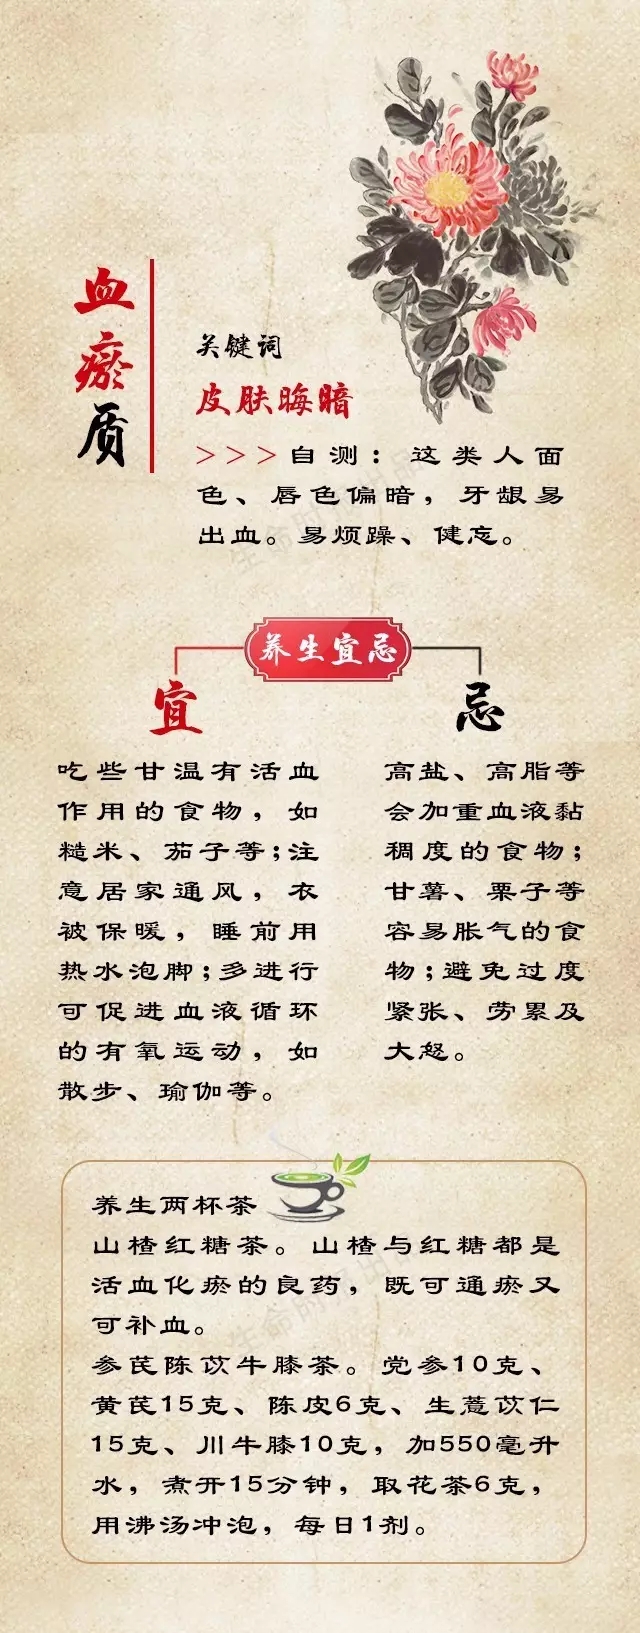 血瘀质
关键词
皮肤晦暗
>>>自测：这类人面
色、唇色偏暗，牙龈易
出血。易烦躁、健忘。
养生宜忌
宜
吃些甘温有活血
作用的食物，如
糙米、茄子等；注
意居家通风，衣
被保暖，睡前用
热水泡脚；多进行
可促进血液循环
的有氧运动，如
散步、瑜伽等。
忌
高盐、高脂等
会加重血液黏
稠度的食物；
甘薯、栗子等
容易胀气的食
物；避免过度
紧张、劳累及
大怒。
养生两杯茶
山楂红糖茶。山楂与红糖都是
活血化瘀的良药，既可通瘀又
可补血。
参芪陈苡牛膝茶。党参10克、
黄芪15克、陈皮6克、生薏苡仁
15克、川牛膝10克，加550毫升
水，煮开15分钟，取花茶6克，
用沸汤冲泡，每日1剂。